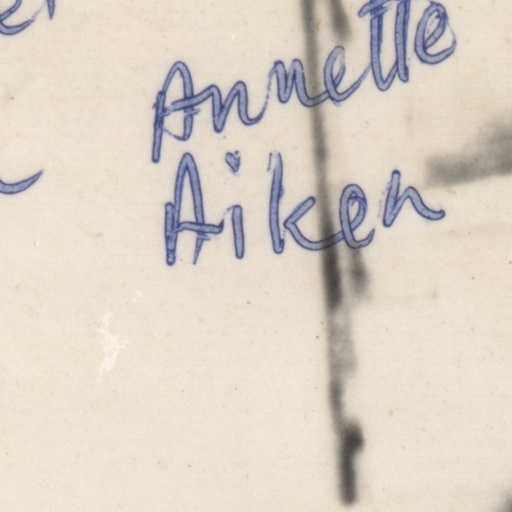 Annette
Aiken